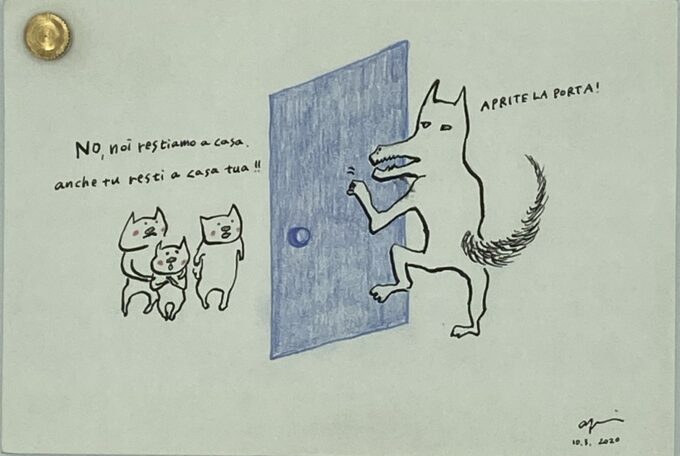 No, noi restiamo a casa.
anche tu resti a casa tua!!
APRITE LA PORTA!
10.3. 2020